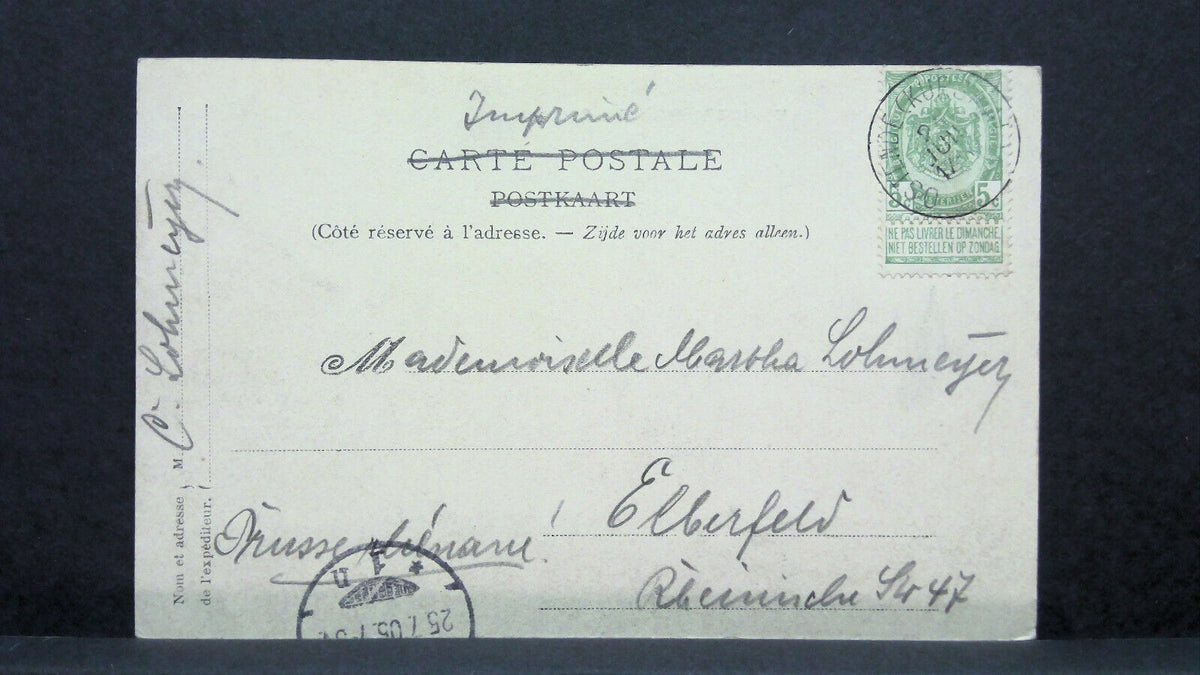 Imprimé
CARTE POSTALE
POSTKAART
(Côté réservé à l'adresse. — Zijde voor het adres alleen.)
POSTES
5 5c
NE PAS LIVRER LE DIMANCHE
NIET BESTELLEN OP ZONDAG
Mademoiselle Martha Lohmeyer
Elberfeld
Prusse rhénane!
Rheinische Str 47
Nom et adresse
de l'expéditeur.
M
C. Lohmeyer.
* 1 n
25.7.05.